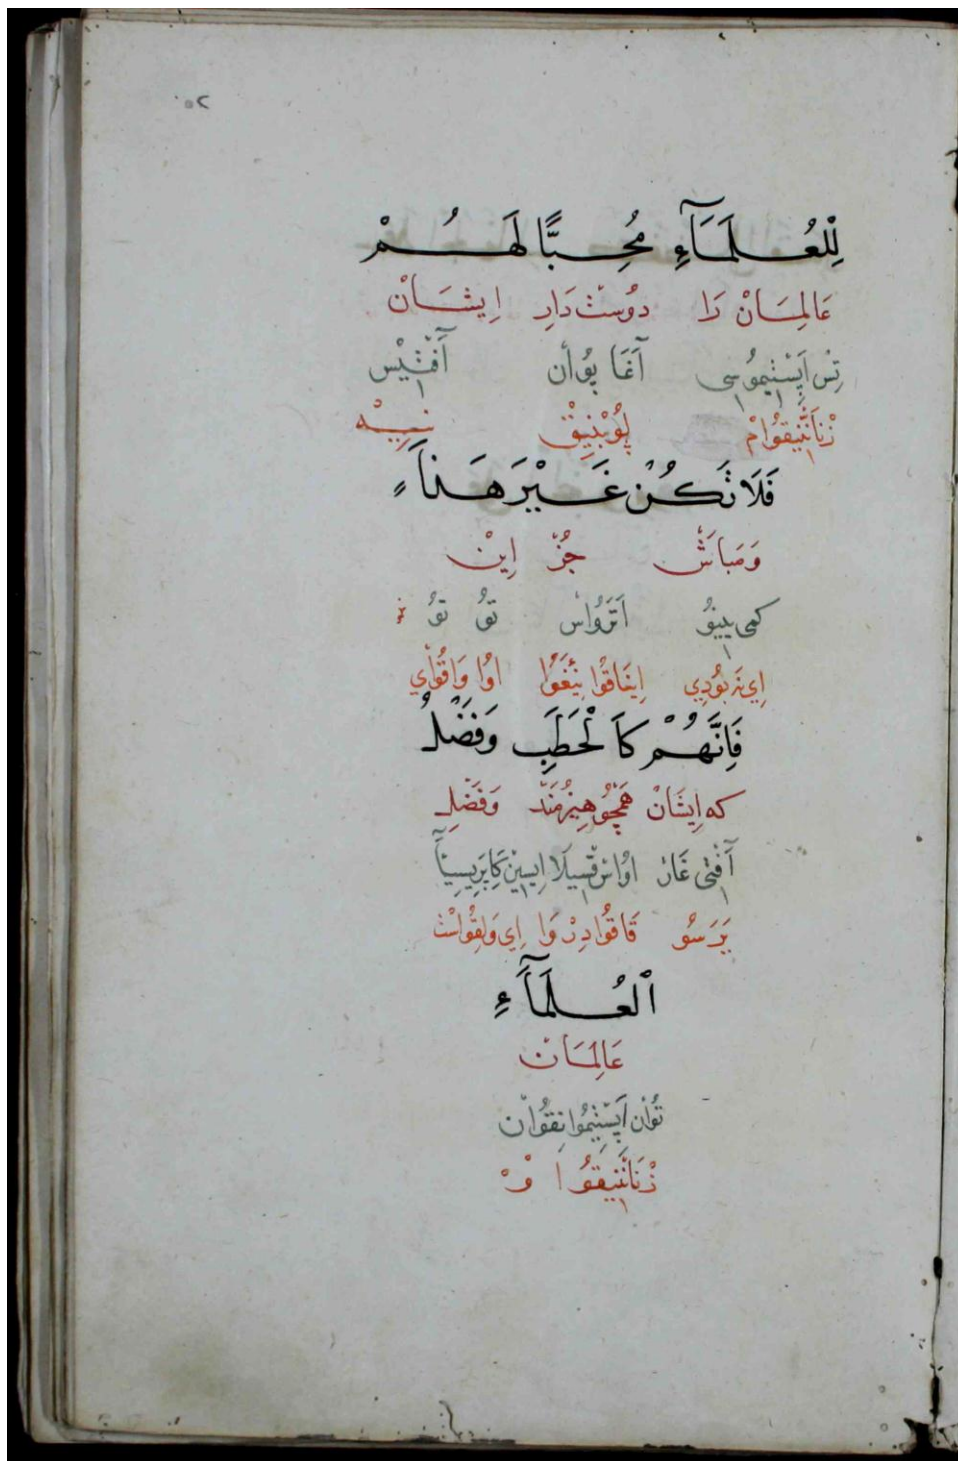 ٢٥
لِلْعُلَمَآءِ مُحِبًّا لَهُمْ
عَالِمَانْ رَا دُوسْتْ دَارِ اِيشَانْ
تِسْ اَپِسْتِيمُوسِى آغَاپُوأن آفْتِيْسْ
زْنَانَّنِيقُوامْ لُوبْنِيقْ نِيِيْه
فَلَا تَكُنْ غَيْرَ هَذَاءٍ
وَمَبَاشْ جُزْ اِينْ
كمى يينوُ اَتَرَوُاسْ توُ توُ
اِي نَه بوُدِي اِينَاقْوا نِيْغَوُا اوُا وَاقُوأي
فَاِنَّهُمْ كَاَ لْحَطَبِ وَفَضْلُ
كه اِيشَانْ هَمْچُو هِيزُمَنْدْ وَفَضْلِ
آفْتِى غَارْ اوُاسْ قْسِيلَا اِيسِينْ كَاِپَرِيسِيَآ
بَرَسُو قَاقْوُا دِرْوَا اِي وَلِقُواسْتْ
ٱلْعُلَمَآءِ
عَالِمَانْ
تُوأن اَپِسْتِيمُوانِقُوأن
زْنَانَّنِيقُوا وْ